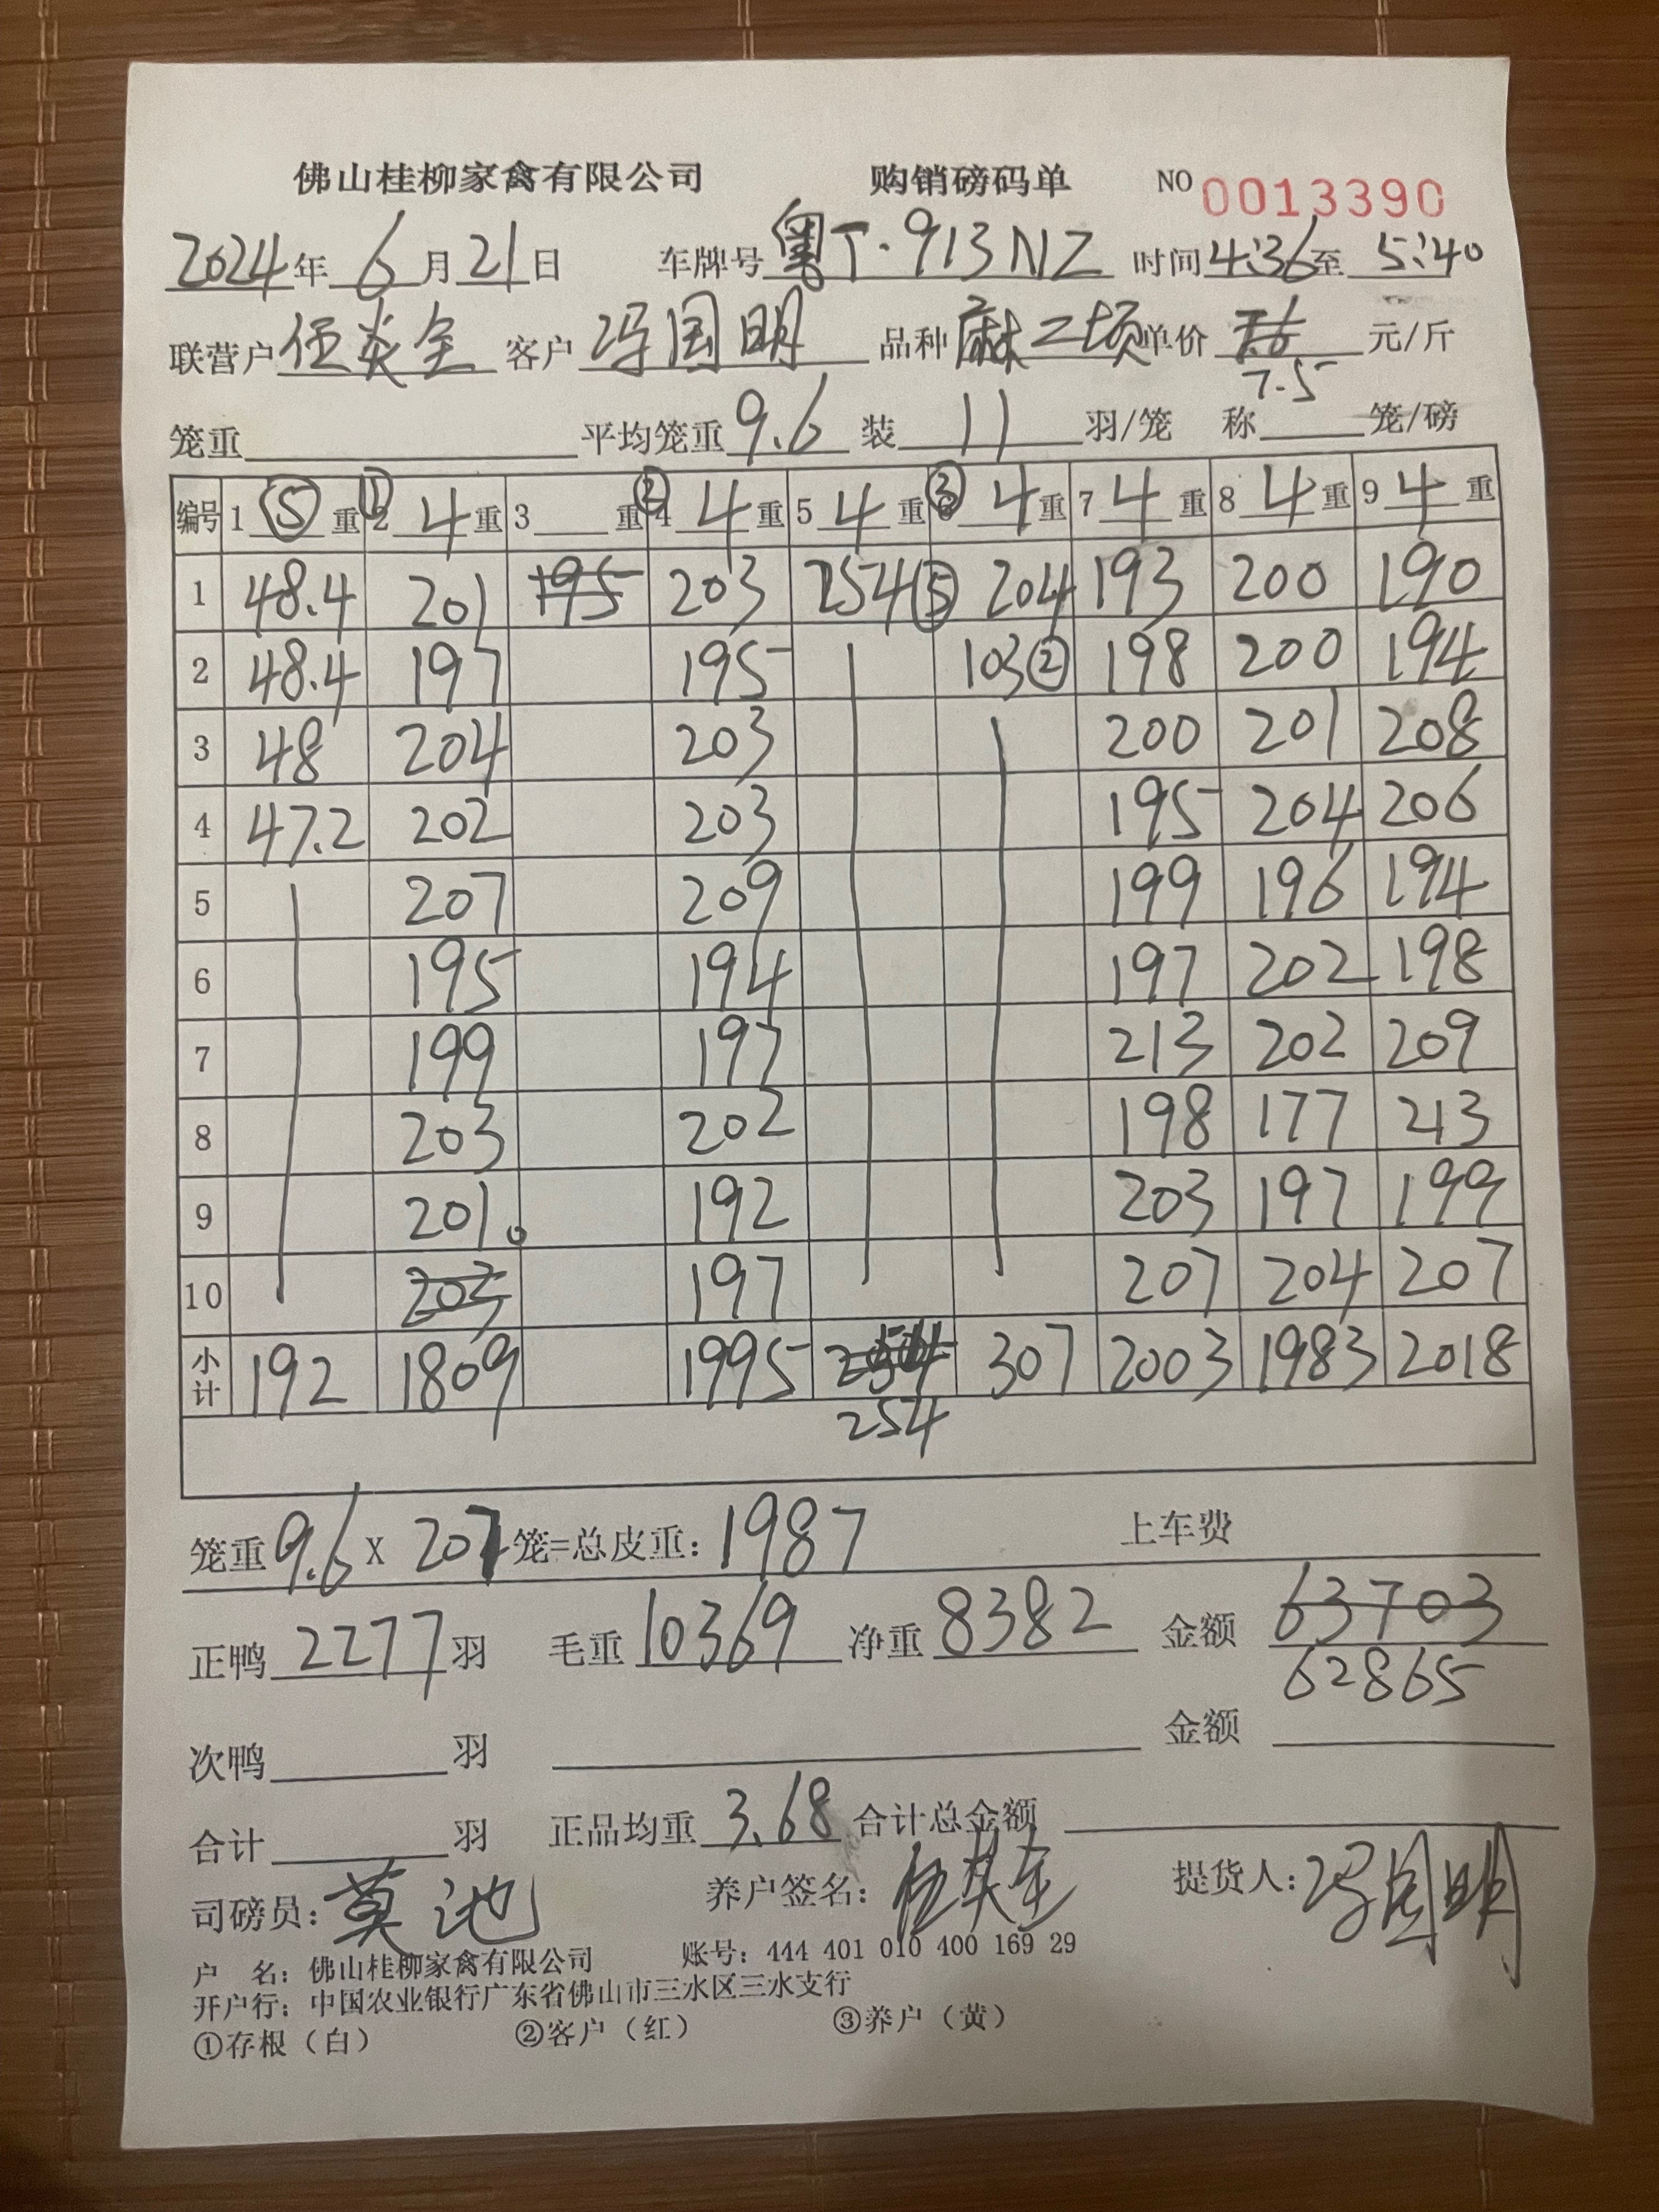 佛山桂柳家禽有限公司 购销磅码单 NO 0013390
2024年 6月 21日 车牌号 粤T·913NZ 时间 4:36 至 5:40
联营户 伍炎全 客户 冯国明 品种 麻二顷 单价 7.6 元/斤
7.5
笼重 平均笼重 9.6 装 11 羽/笼 称 笼/磅
编号 1 ⑤ 重 ① 2 4 重 3 重 ② 4 4 重 5 4 重 ③ 6 4 重 7 4 重 8 4 重 9 4 重
1 48.4 201 195 203 254⑤ 204 193 200 190
2 48.4 197 195 103② 198 200 194
3 48 204 203 200 201 208
4 47.2 202 203 195 204 206
5 207 209 199 196 194
6 195 194 197 202 198
7 199 197 213 202 209
8 203 202 198 177 213
9 201。 192 203 197 199
10 203 197 207 204 207
小计 192 1809 1995 307 2003 1983 2018
254
笼重 9.6 X 207 笼=总皮重: 1987 上车费
正鸭 2277 羽 毛重 10369 净重 8382 金额 63703
62865
次鸭 羽 金额
合计 羽 正品均重 3.68 合计总金额
司磅员: 莫池 养户签名: 提货人: 冯国明
户 名: 佛山桂柳家禽有限公司 账号: 444 401 010 400 169 29
开户行: 中国农业银行广东省佛山市三水区三水支行
①存根（白） ②客户（红） ③养户（黄）